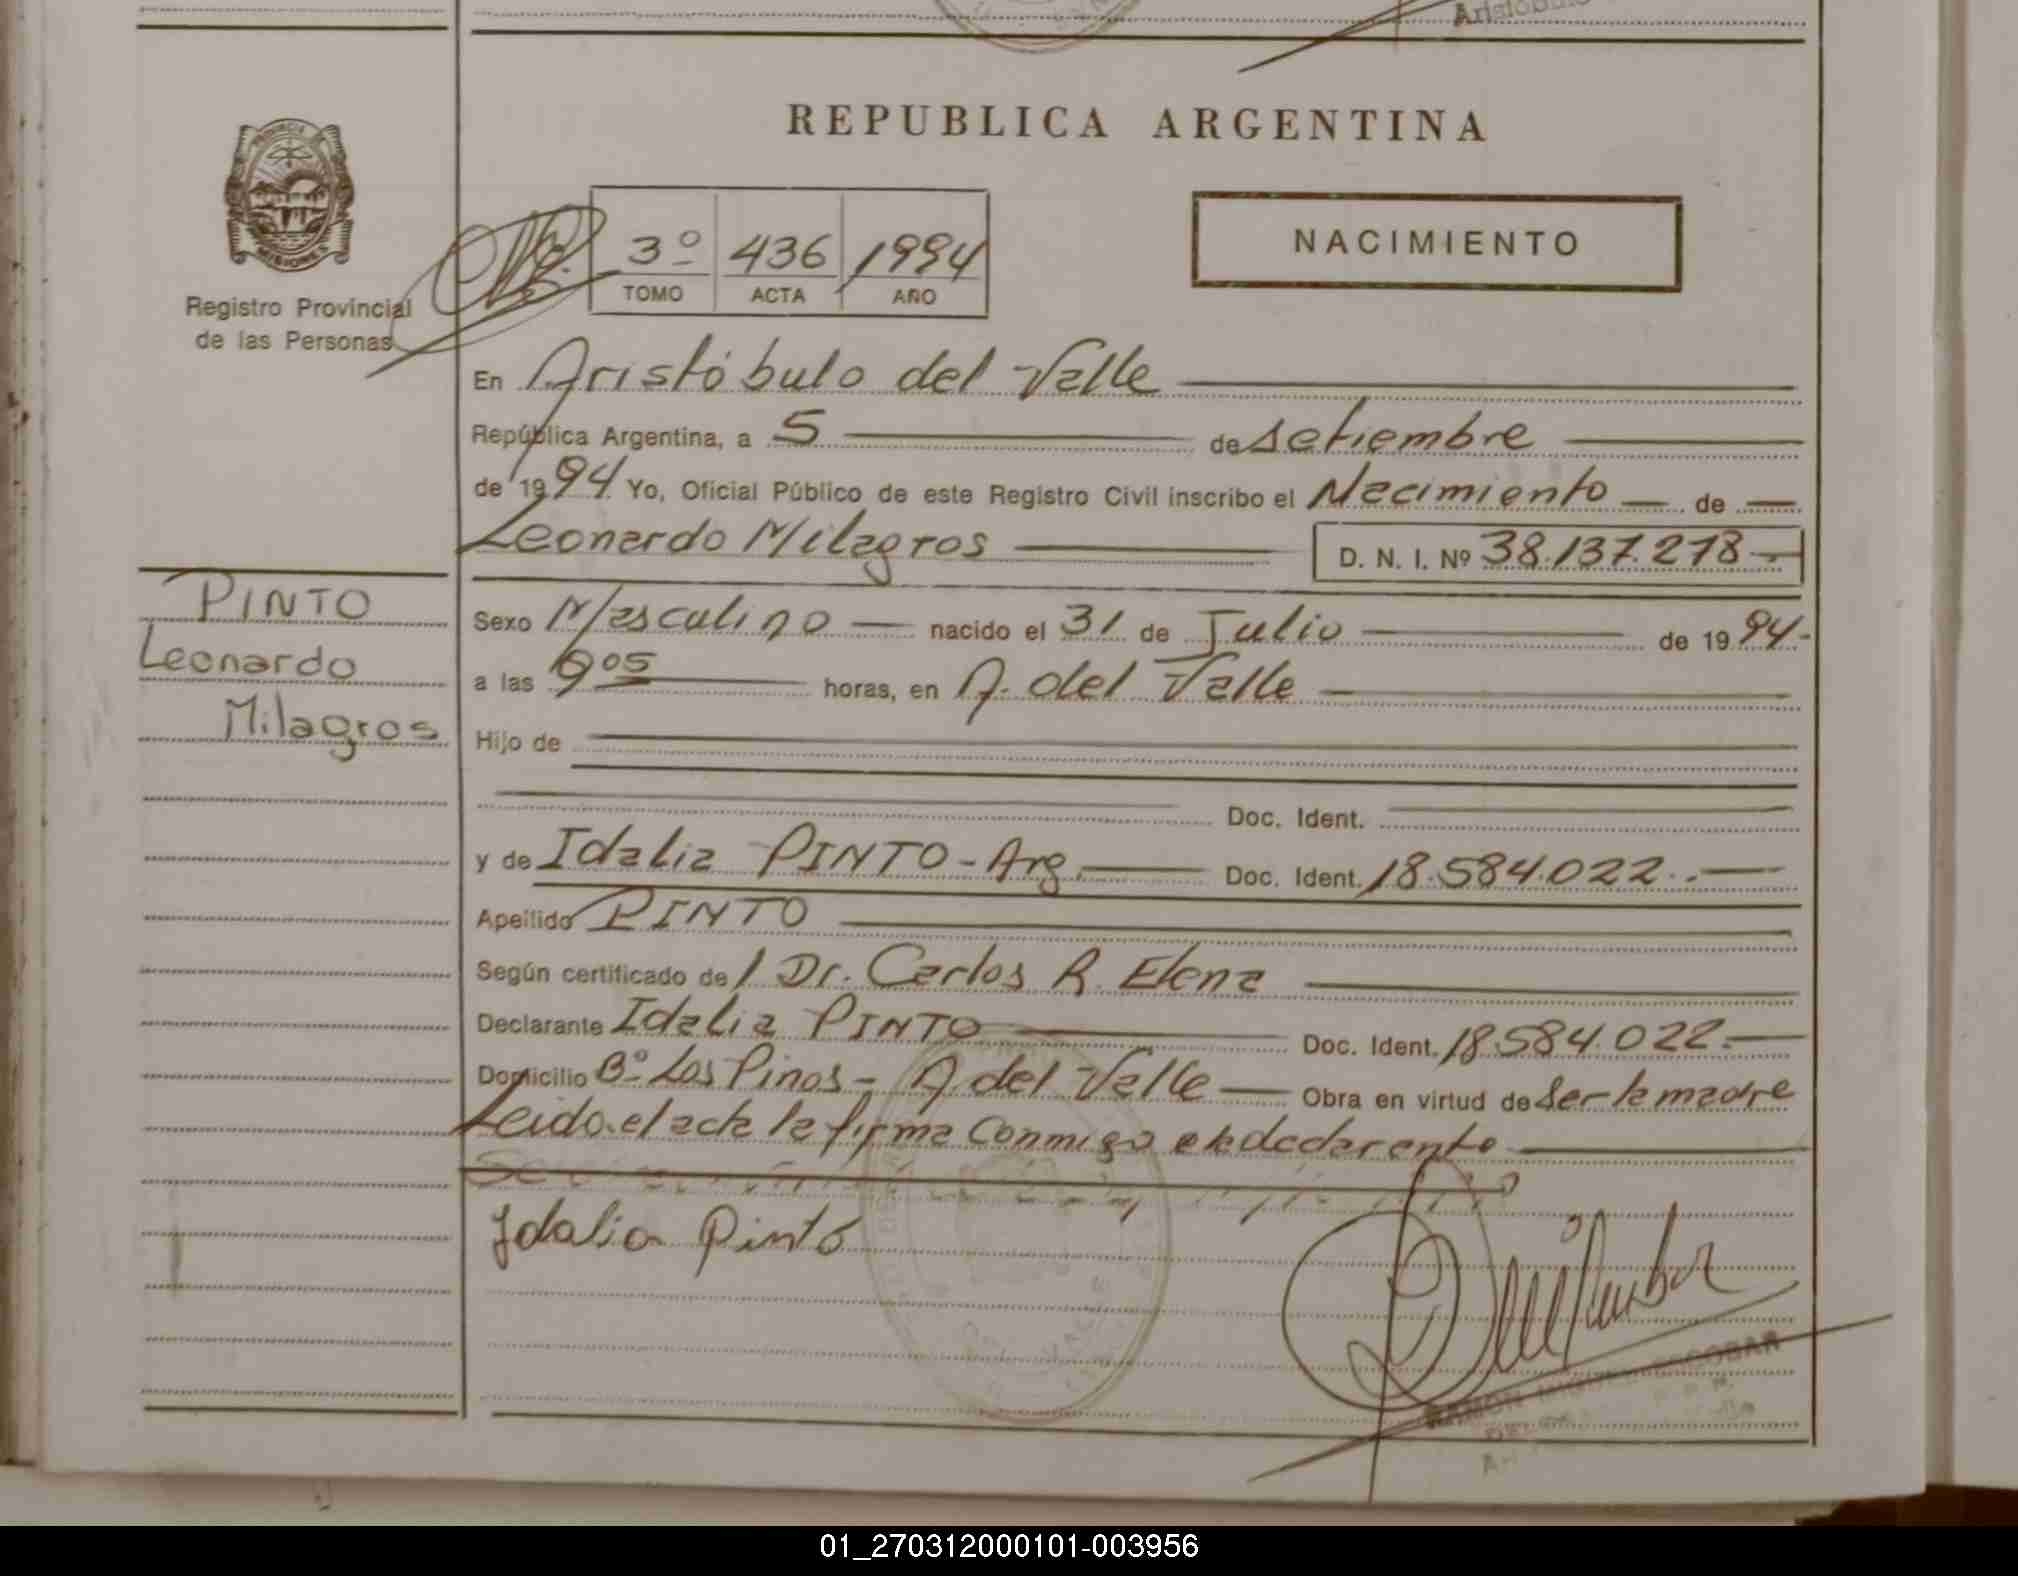 REPUBLICA ARGENTINA
PROVINCIA
MISIONES
Registro Provincial
de las Personas
3º 436 1994
TOMO ACTA AÑO
NACIMIENTO
En Aristóbulo del Valle
República Argentina, a 5 de setiembre
de 1994 Yo, Oficial Público de este Registro Civil inscribo el Nacimiento de
Leonardo Milagros D. N. I. Nº 38.137.278
PINTO
Leonardo
Milagros
Sexo Masculino nacido el 31 de Julio de 1994
a las 9 05 horas, en A. del Valle
Hijo de
Doc. Ident.
y de Idalia PINTO - Arg. Doc. Ident. 18.584.022
Apellido PINTO
Según certificado de Dr. Carlos R. Elena
Declarante Idalia PINTO Doc. Ident. 18.584.022
Domicilio Bº Los Pinos - A. del Valle Obra en virtud de ser la madre
Leido el acta la firma conmigo la declarante
Idalia Pinto
RAMON ESCOBAR
01_270312000101-003956